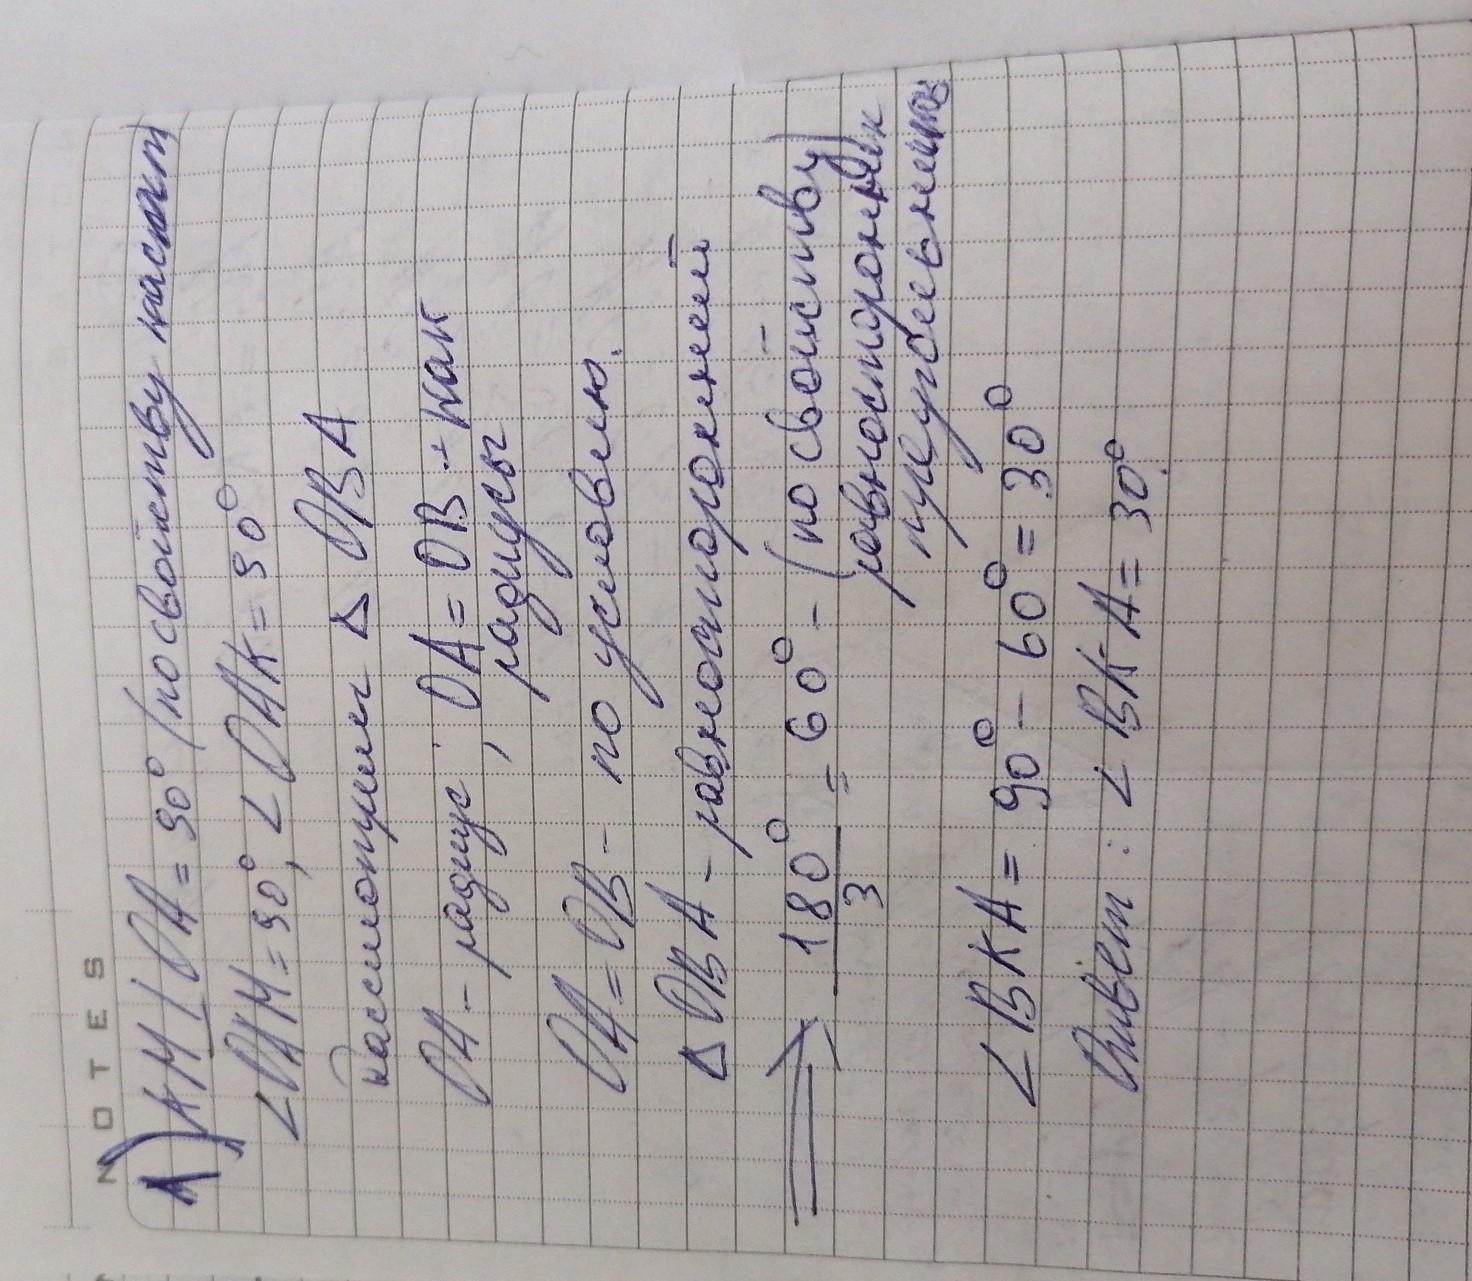 NOTES
1) KM ⊥ OA = 90° (по свойству касат)
∠OAM = 90°, ∠OAK = 90°
Рассмотрим △ OBA
OA - радиус, OA = OB - как
радиусы
OA = OB - по условию.
△ OBA - равносторонний
⟹ 180°/3 = 60° - (по свойству)
равносторонних
треугольников
∠BKA = 90° - 60° = 30°
Ответ: ∠BKA = 30°.